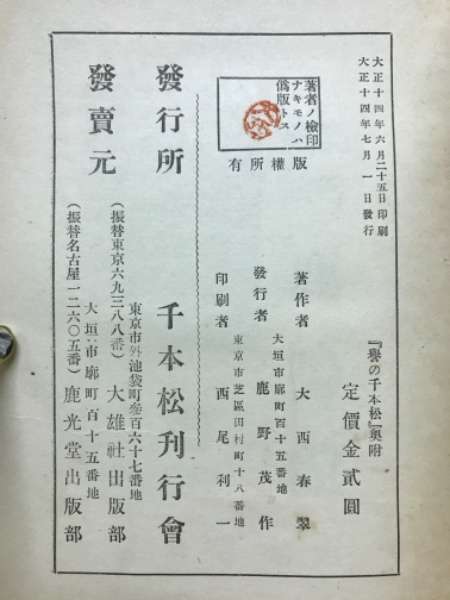 大正十四年六月二十五日印刷
大正十四年七月一日發行
『譽の千本松』奥附
定價金貳圓
著者ノ檢印
ナキモノハ
僞版トス
版權所有
著作者 大西春翠
大垣市廓町百十五番地
發行者 鹿野茂作
東京市芝區田村町十八番地
印刷者 西尾利一
發行所 千本松刊行會
東京市外池袋町參百六十七番地
發賣元
(振替東京六九三八八番)大雄社出版部
大垣市廓町百十五番地
(振替名古屋一二六〇五番)鹿光堂出版部